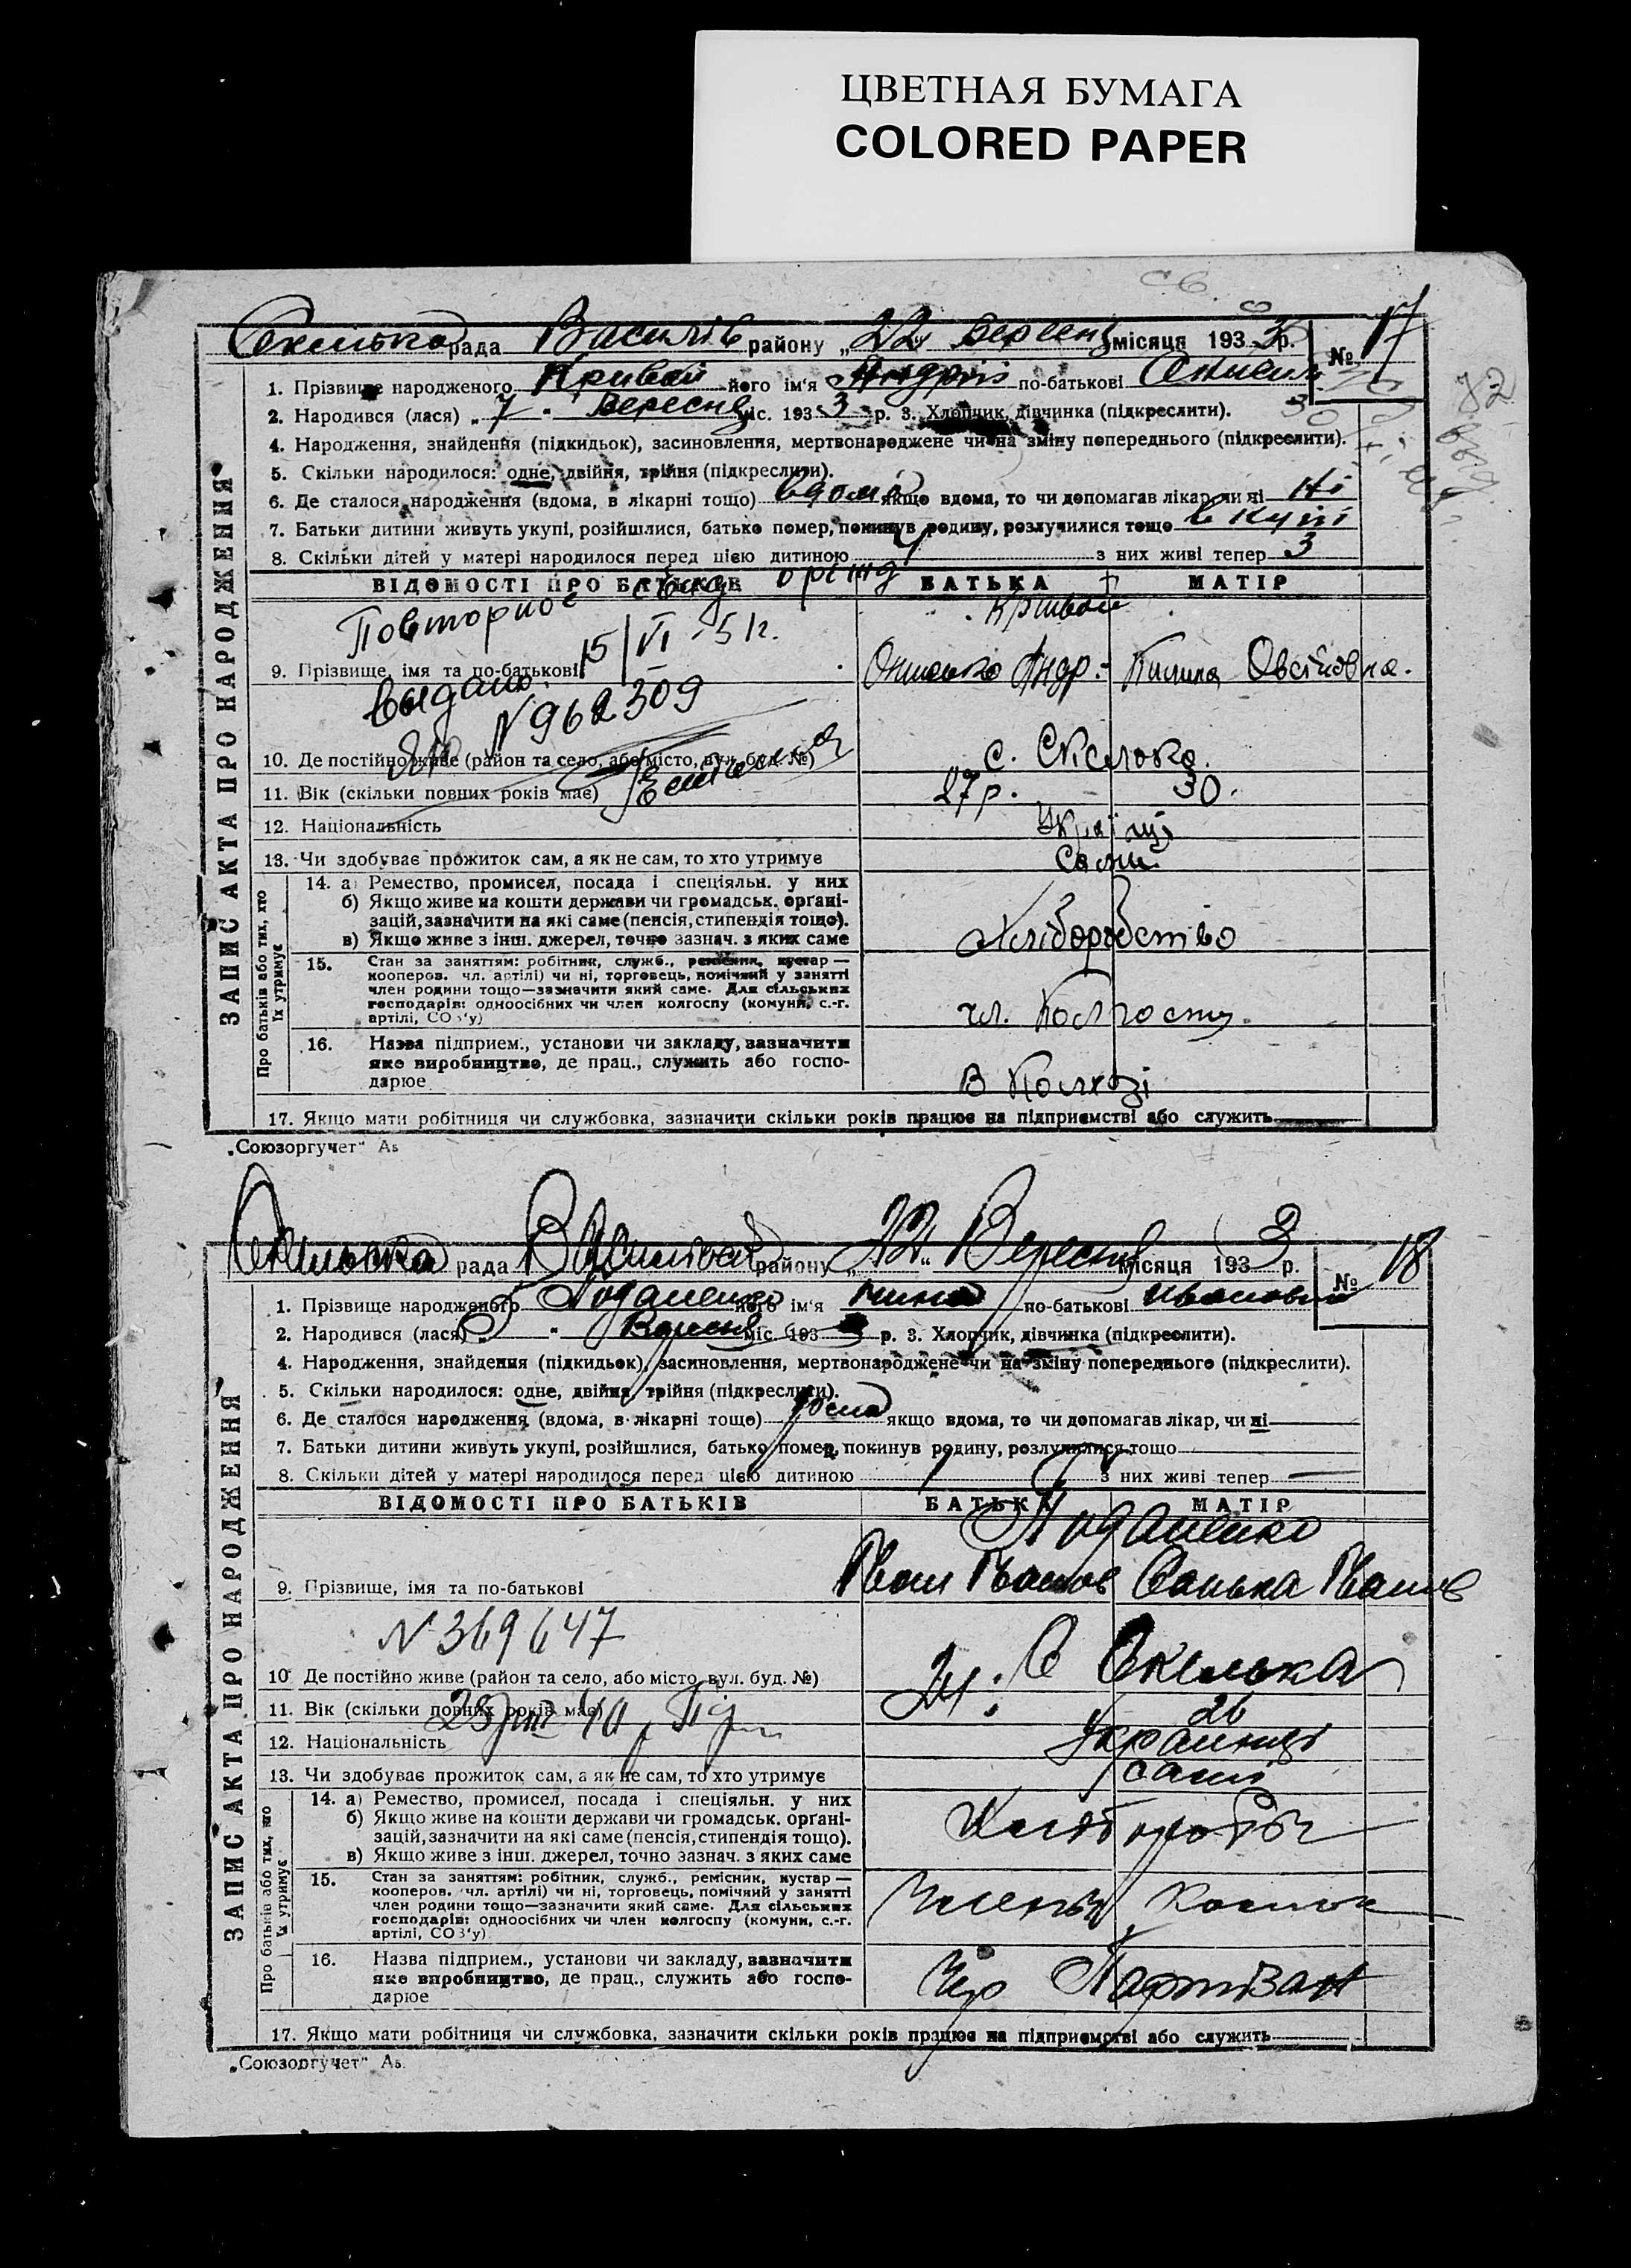 ЦВЕТНАЯ БУМАГА
COLORED PAPER
св.
Скельковс рада Василів району „22" Вересня місяця 193 3 р. № 17
1. Прізвище народженого Кривой його ім'я Андрій по-батькові
2. Народився (лася) „7" Вересня міс. 193 3 р. 3. Хлопчик, дівчинка (підкреслити).
4. Народження, знайдення (підкидьок), засиновлення, мертвонароджене чи на зміну попереднього (підкреслити).
5. Скільки народилося: одне, двійня, трійня (підкреслити).
6. Де сталося народження (вдома, в лікарні тощо) вдома якщо вдома, то чи допомагав лікар, чи ні Ні
7. Батьки дитини живуть укупі, розійшлися, батько помер, покинув родину, розлучилися тощо вкупі
8. Скільки дітей у матері народилося перед цією дитиною 4 з них живі тепер 3
ВІДОМОСТІ ПРО БАТЬКІВ БАТЬКА МАТІР
Повторное
15/VI-51г.
выдано
N 962309
Кривой
9. Прізвище, імя та по-батькові Андр. Овсіївна.
10. Де постійно живе (район та село, або місто, вул. буд. №) с. Скелька.
11. Вік (скільки повних років має) 27 р. 30.
12. Національність Українці
13. Чи здобуває прожиток сам, а як не сам, то хто утримує Самі
14. а) Ремество, промисел, посада і спеціяльн. у них
б) Якщо живе на кошти держави чи громадськ. орґані-
зацій, зазначити на які саме (пенсія, стипендія тощо).
в) Якщо живе з інш. джерел, точно зазнач. з яких саме
Хлібороб​ство
15. Стан за заняттям: робітник, служб., ремісник, кустар —
кооперов. чл. артілі) чи ні, торговець, помічний у занятті
член родини тощо—зазначити який саме. Для сільських
господарів: одноосібних чи член колгоспу (комуни, с.-г.
артілі, СОЗ'у)
чл. Колгоспу.
16. Назва підприєм., установи чи закладу, зазначити
яке виробництво, де прац., служить або госпо-
дарює
В Колхозі
17. Якщо мати робітниця чи службовка, зазначити скільки років працює на підприємстві або служить
ЗАПИС АКТА ПРО НАРОДЖЕННЯ
Про батьків або тих, хто
їх утримує
„Союзоргучет" Ав
Скельковска рада Васильвськ району „22" Вересня місяця 193 3 р. № 18
1. Прізвище народженого його ім'я по-батькові Ивановна
2. Народився (лася) „5" Вересня міс. 193 3 р. 3. Хлопчик, дівчинка (підкреслити).
4. Народження, знайдення (підкидьок), засиновлення, мертвонароджене чи на зміну попереднього (підкреслити).
5. Скільки народилося: одне, двійня, трійня (підкреслити).
6. Де сталося народження (вдома, в лікарні тощо) якщо вдома, то чи допомагав лікар, чи ні
7. Батьки дитини живуть укупі, розійшлися, батько помер, покинув родину, розлучилися тощо
8. Скільки дітей у матері народилося перед цією дитиною з них живі тепер
ВІДОМОСТІ ПРО БАТЬКІВ БАТЬКА МАТІР
9. Прізвище, імя та по-батькові Іван Іванов Санька Іванів
N 369647
10 Де постійно живе (район та село, або місто, вул. буд. №) С Скелька
11. Вік (скільки повних років має) 24: 26
12. Національність Украинци
13. Чи здобуває прожиток сам, а як не сам, то хто утримує сами
14. а) Ремество, промисел, посада і спеціяльн. у них
б) Якщо живе на кошти держави чи громадськ. орґані-
зацій, зазначити на які саме (пенсія, стипендія тощо).
в) Якщо живе з інш. джерел, точно зазнач. з яких саме
15. Стан за заняттям: робітник, служб., ремісник, кустар —
кооперов. чл. артілі) чи ні, торговець, помічний у занятті
член родини тощо—зазначити який саме. Для сільських
господарів: одноосібних чи член колгоспу (комуни, с.-г.
артілі, СОЗ'у)
16. Назва підприєм., установи чи закладу, зазначити
яке виробництво, де прац., служить або госпо-
дарює
Чер Партизан
17. Якщо мати робітниця чи службовка, зазначити скільки років працює на підприємстві або служить
ЗАПИС АКТА ПРО НАРОДЖЕННЯ
Про батьків або тих, хто
їх утримує
„Союзоргучет" Ав.